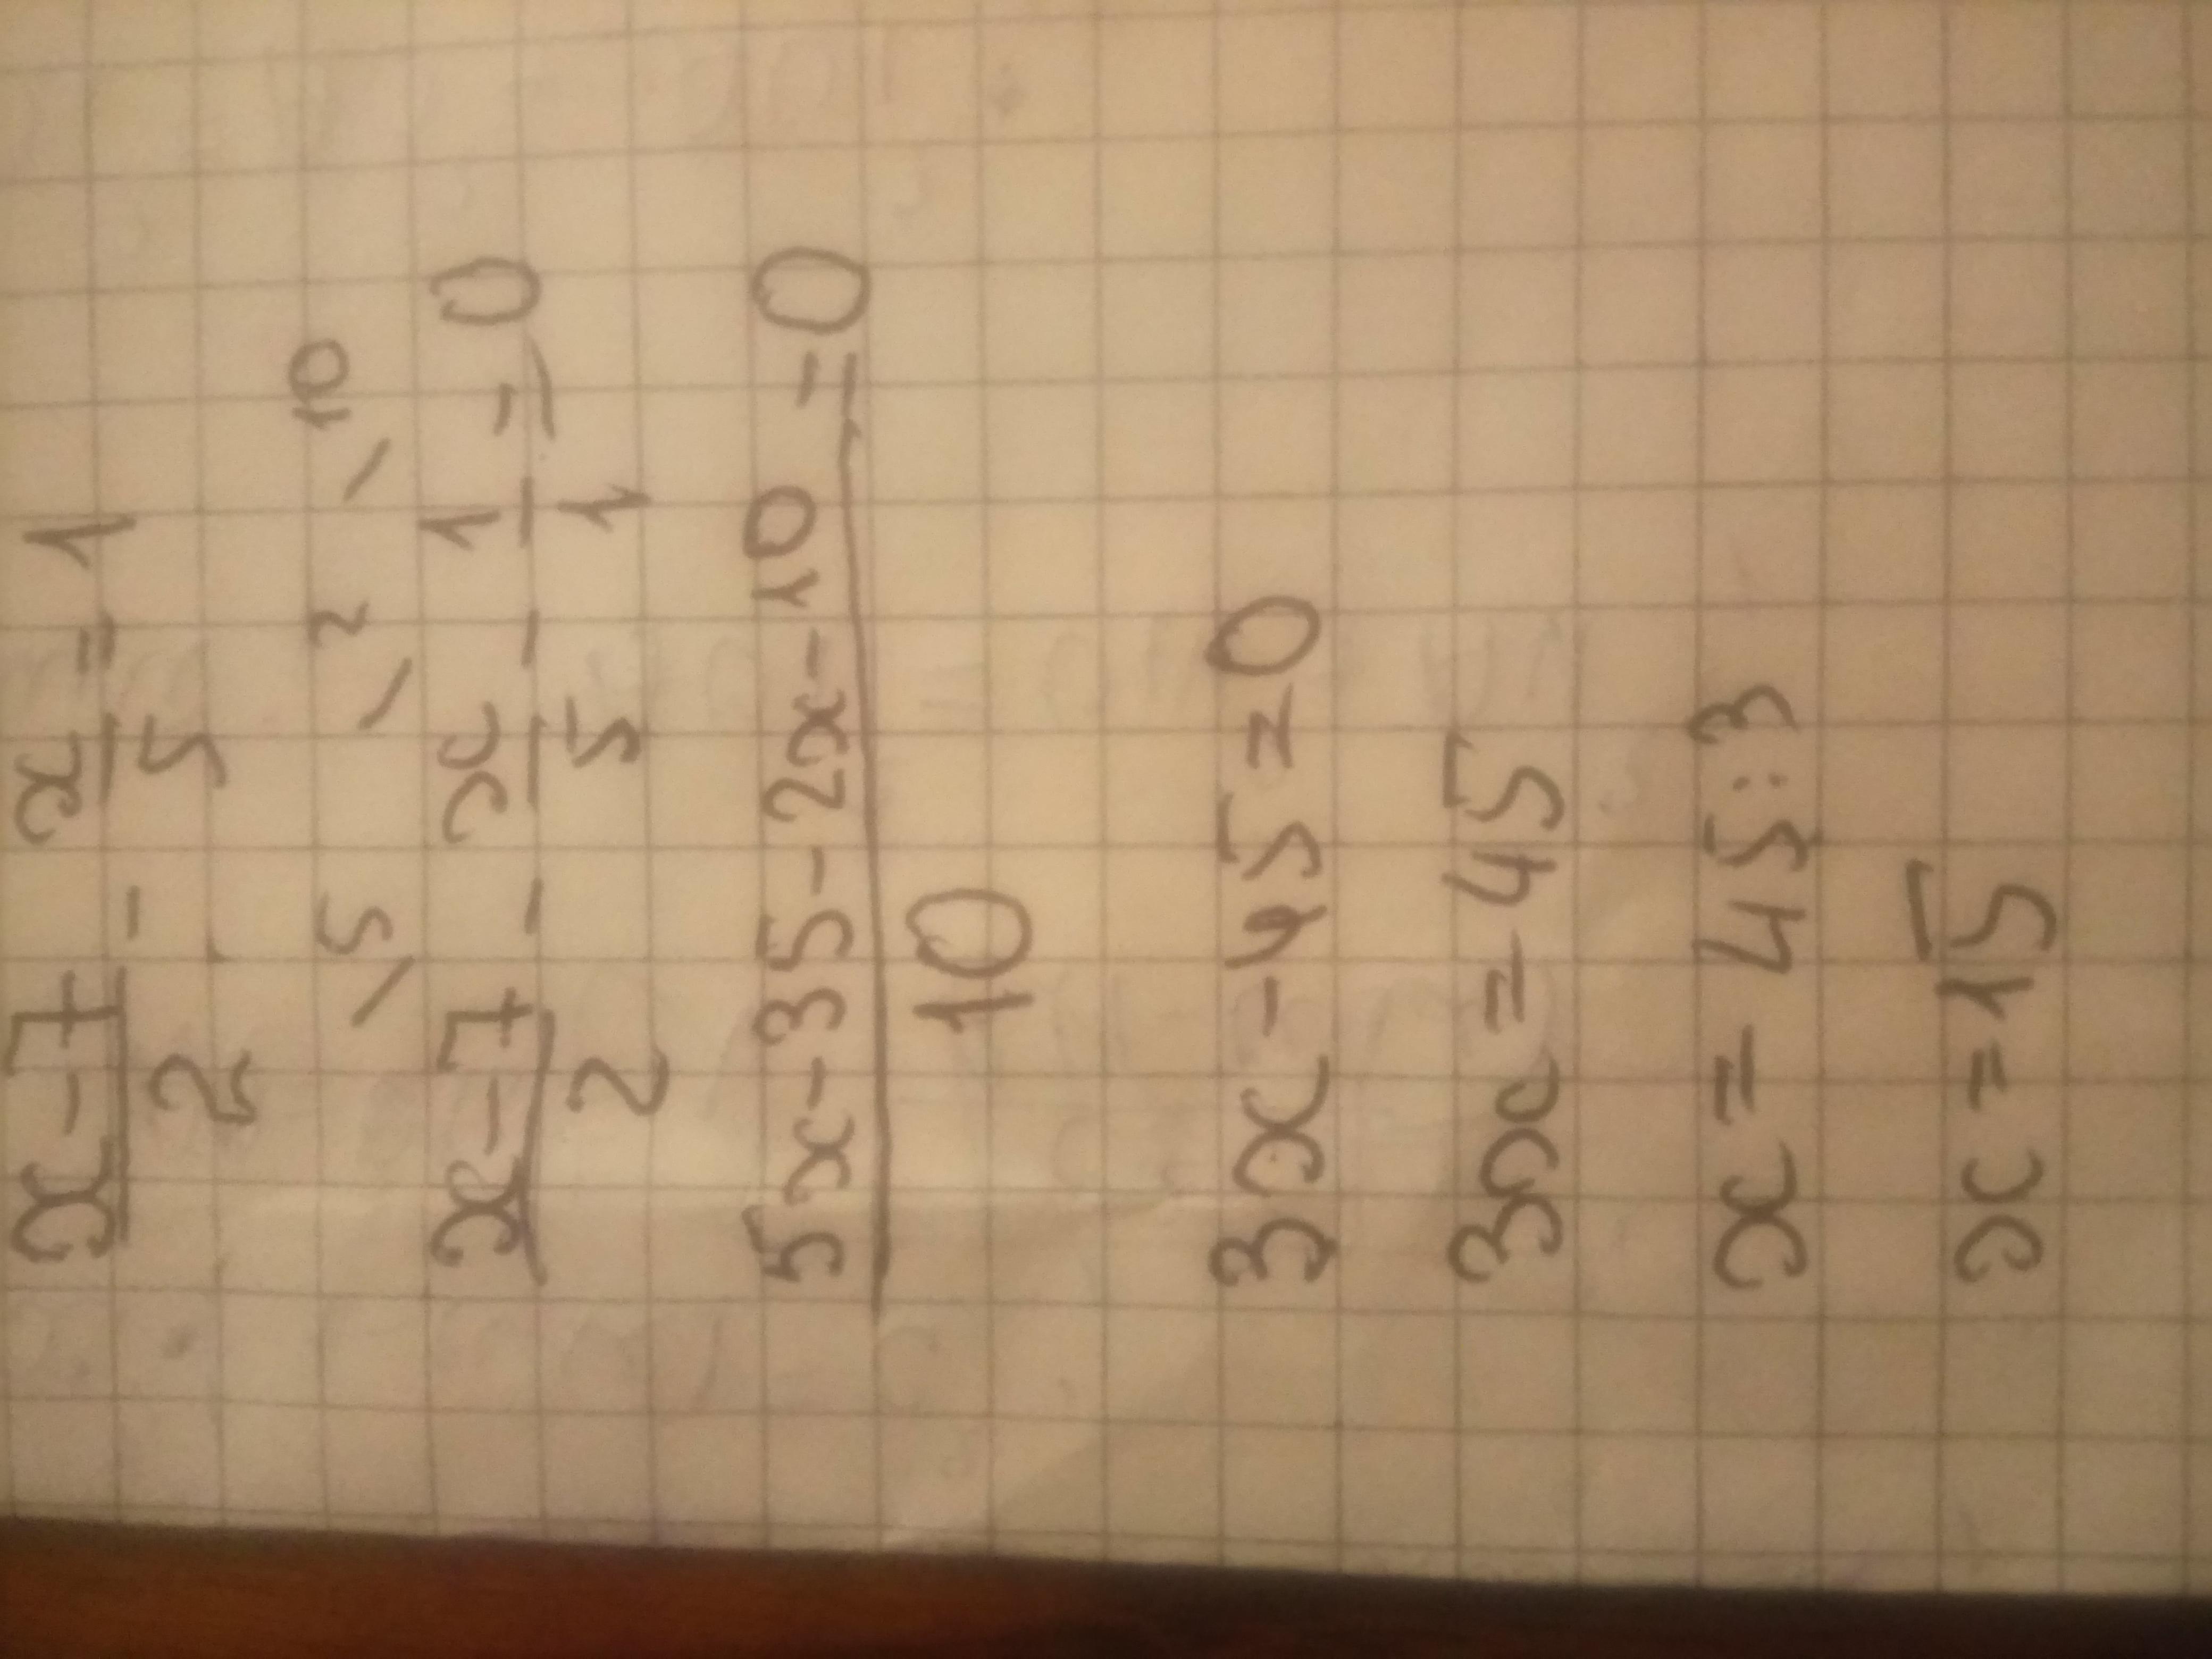 x-7/2 - x/5 = 1
\5 \2 \10
x-7/2 - x/5 - 1/1 = 0
5x-35-2x-10/10 = 0
3x-45=0
3x=45
x=45:3
x=15